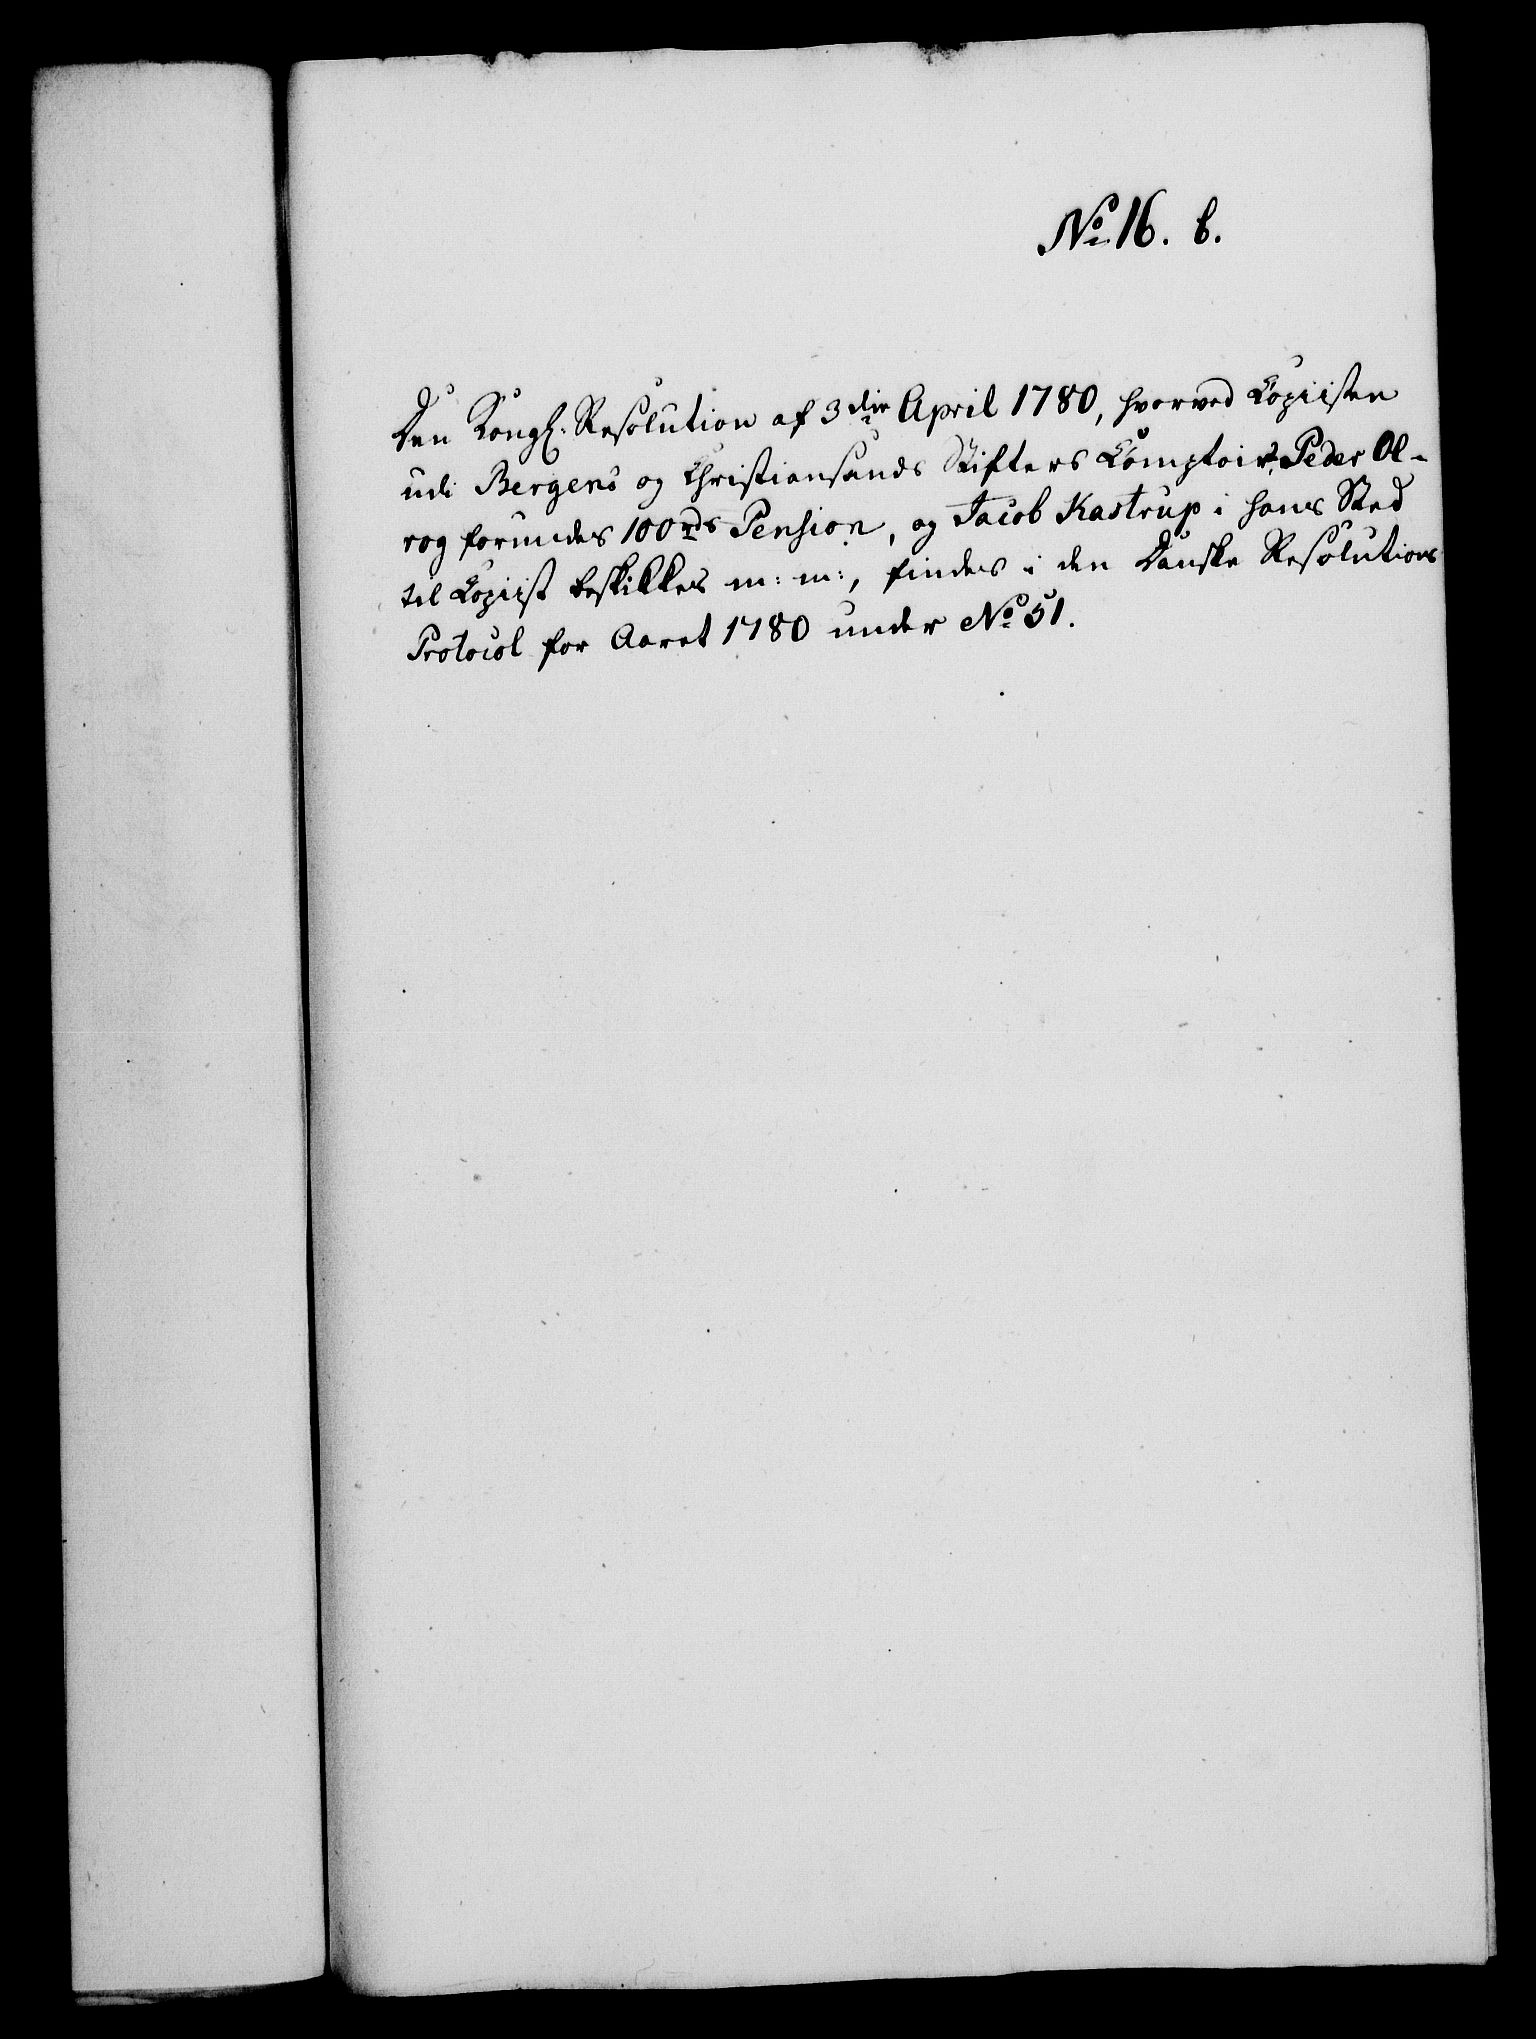 No 16. b.
Den Kongl. Resolution af 3die April 1780, hvorved Copiisten
udi Bergens og Christiansands Stifters Comptoir, Peder Ol-
rog forundes 100 rds Pension, og Jacob Kastrup i hans Sted
til Copiist beskikkes m: m:, findes i den Danske Resolutions
Protocol for Aaret 1780 under No 51.